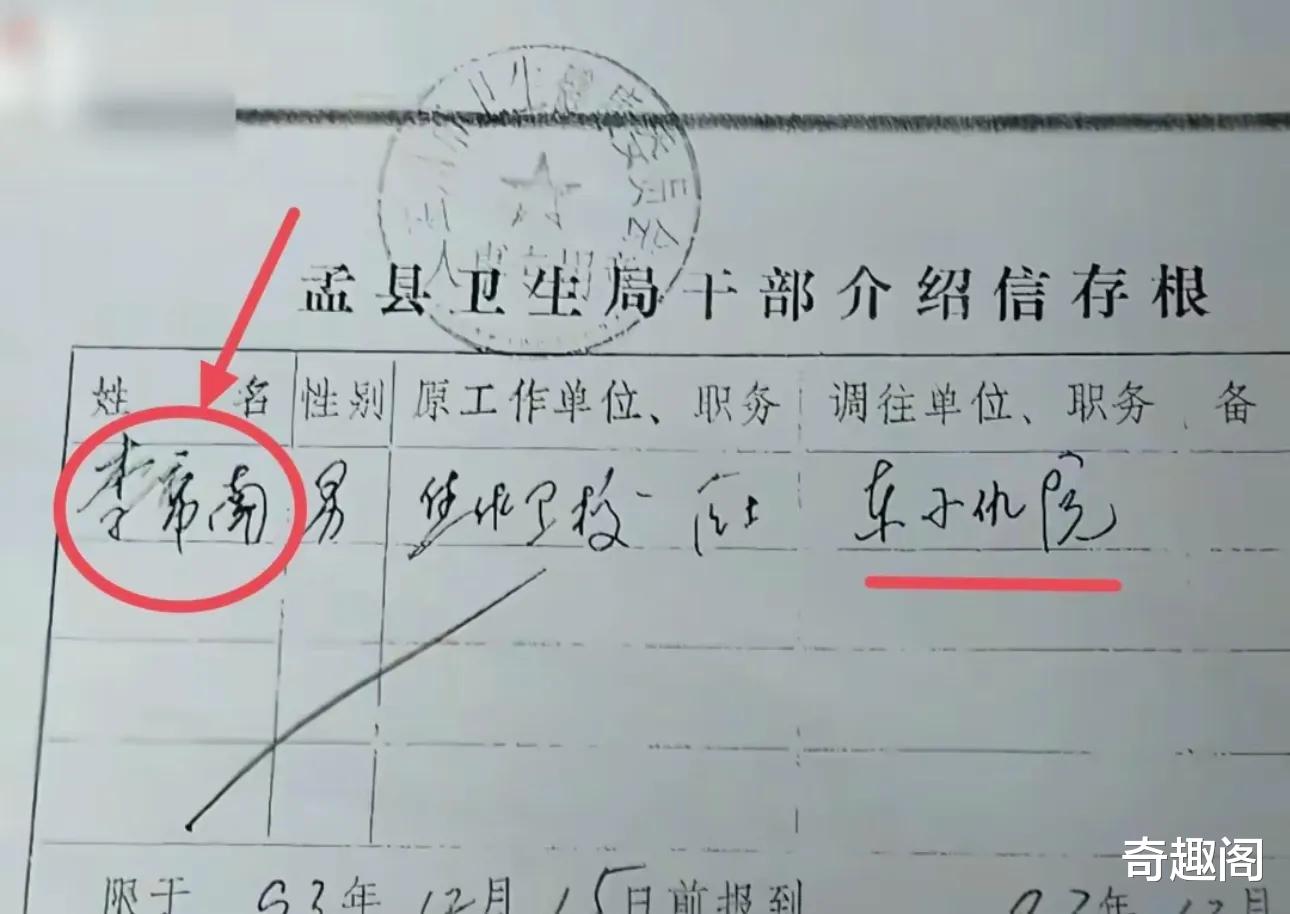 孟县卫生局干部介绍信存根
姓名 性别 原工作单位、职务 调往单位、职务 备
李希南 男 焦作卫校 医士 东小仇院
限于 93年 12月 15日前报到 93年 12月
奇趣阁